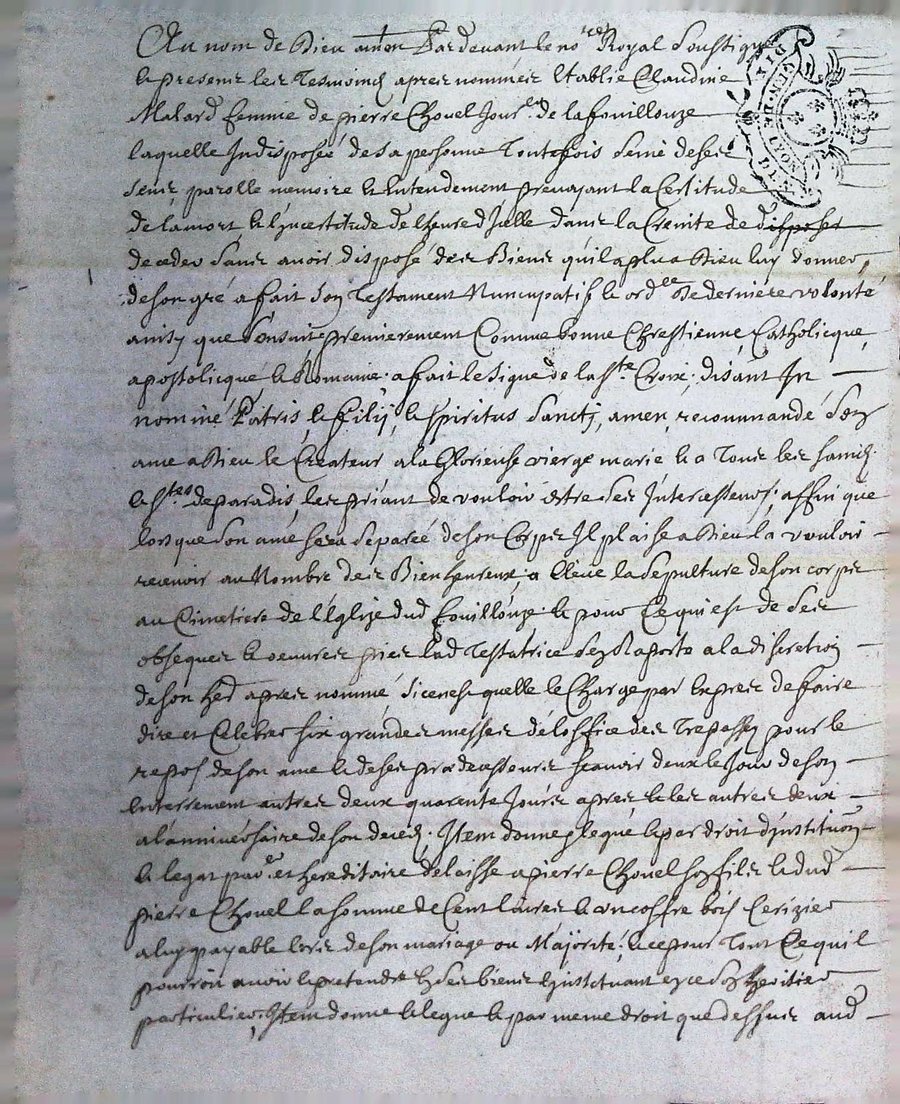 Au nom de Dieu amen Pardevant le no.re Royal Soustigné
& presents les Tesmoins apres nommés Establie Claudine
Malard femme de pierre Chovel Jour.er de lafouillouze
laquelle Indisposée de sa personne Toutesfois Seine deses
Sens, parolle memoire & Entendement prevoyant la Certitude
de la mort & l'Incertitude de l'heure d'Icelle dans la Creinte de disposer
deceder Sans avoir disposé des Biens quil a plu a Dieu luy donner,
de son gré a fait Son Testament Nuncupatif & ord.ce De derniere volonté
ainsy que s'ensuit premierement Comme bonne Chrestienne, Catholicque,
apostolicque & Romaine, a fait le signe de la S.te Croix, disant In
nomine Patris, & filij, & Spiritus Sanctj, amen, recommandé Son
ame a Dieu le Createur a la Glorieuse vierge marie & a Tous les Saincts
& S.tes de paradis, les priant de vouloir estre Ses Intercesseurs, affin que
lors que Son ame sera Separée de son Corps Il plaise a Dieu la vouloir
recevoir au Nombre des Bienheureux, a Eleue la Sepulture de son corps
au Cimetiere de l'Eglize dud. fouillouze & pour Ce qui est de Ses
obseques & oeuvres pies lad. Testatrice S'en Raporte a la discretion
de son her. apres nommé, Si ce n'est quelle le Charge par Expres de faire
dire et Celebrer six grandes messes de l'office des Trepassez pour le
repos de son ame & de ses predecesseurs scavoir deux le Jour de son
Enterrement autres deux quarente Jours apres & les autres deux
a l'anniversaire de son deceds. Item donne legue & par droit d'institution
& legat par.er et hereditaire delaisse a pierre Chovel son fils & dud.
pierre Chovel la somme de Cent livres & un coffre bois Cerizier
a luy payable lors de son mariage ou Majorité, & ce pour Tout Ce quil
pourroit avoir & pretendre En Ses biens L'instituant en ce Son heritier
particulier, Item donne & legue & par meme droit que dessus aud.
DIX
GEN. DE LYON